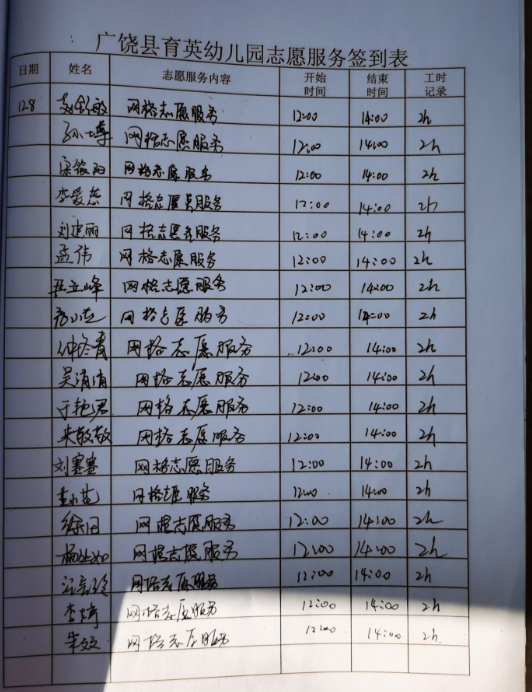 广饶县育英幼儿园志愿服务签到表
日期 姓名 志愿服务内容 开始时间 结束时间 工时记录
12.8 网格志愿服务 12:00 14:00 2h
网格志愿服务 12:00 14:00 2h
网格志愿服务 12:00 14:00 2h
李爱蕊 网格志愿服务 12:00 14:00 2h
刘建丽 网格志愿服务 12:00 14:00 2h
孟伟 网格志愿服务 12:00 14:00 2h
网格志愿服务 12:00 14:00 2h
网格志愿服务 12:00 14:00 2h
网格志愿服务 12:00 14:00 2h
吴清清 网格志愿服务 12:00 14:00 2h
于艳君 网格志愿服务 12:00 14:00 2h
网格志愿服务 12:00 14:00 2h
刘寒寒 网格志愿服务 12:00 14:00 2h
网格志愿服务 12:00 14:00 2h
网格志愿服务 12:00 14:00 2h
网格志愿服务 12:00 14:00 2h
网格志愿服务 12:00 14:00 2h
网格志愿服务 12:00 14:00 2h
网格志愿服务 12:00 14:00 2h